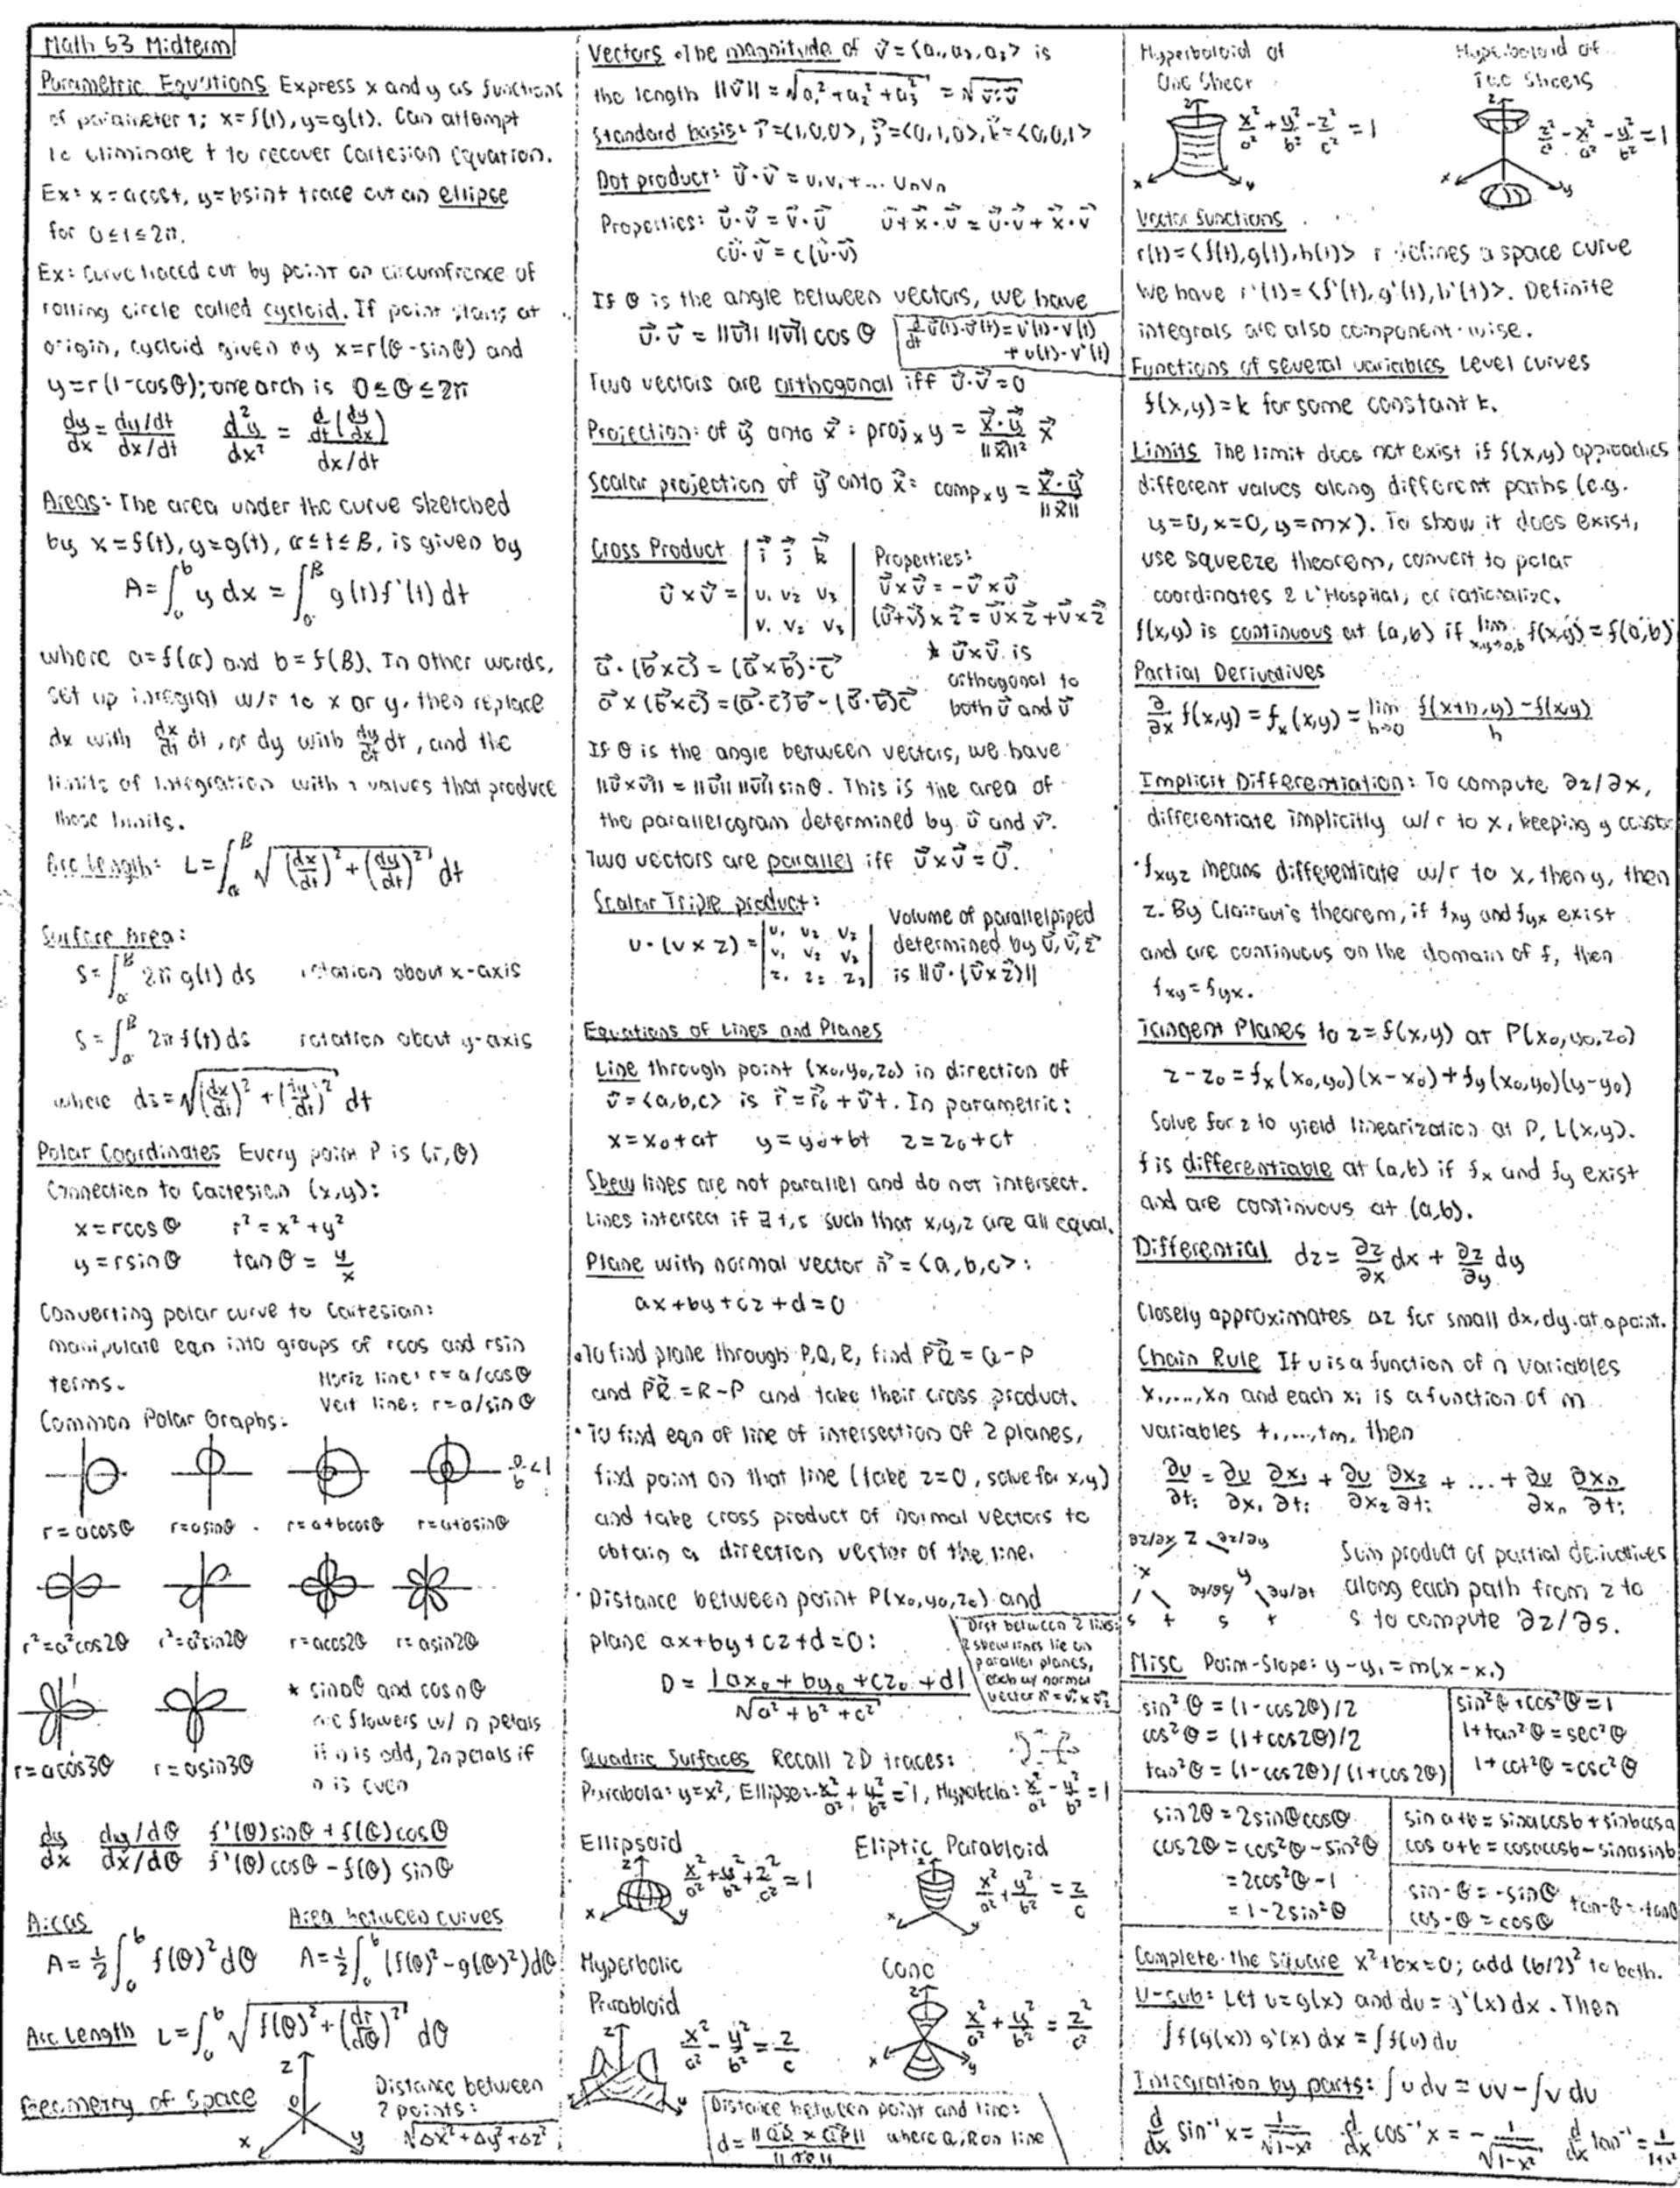 Math 53 Midterm
Parametric Equations Express x and y as functions
of parameter t; x=f(t), y=g(t). Can attempt
to eliminate t to recover Cartesian Equation.
Ex: x=acost, y=bsint trace out an ellipse
for 0≤t≤2π.
Ex: Curve traced out by point on circumfrence of
rolling circle called cycloid. If point starts at
origin, cycloid given by x=r(θ-sinθ) and
y=r(1-cosθ); one arch is 0≤θ≤2π
dy/dx = (dy/dt)/(dx/dt)   d²y/dx² = (d/dt(dy/dx))/(dx/dt)
Areas: The area under the curve sketched
by x=f(t), y=g(t), α≤t≤β, is given by
A=∫ₐᵇ y dx = ∫_α^β g(t)f'(t) dt
where a=f(α) and b=f(β). In other words,
set up integral w/r to x or y, then replace
dx with dx/dt dt, or dy with dy/dt dt, and the
limits of integration with t values that produce
those limits.
Arc Length: L=∫_α^β √((dx/dt)²+(dy/dt)²) dt
Surface Area:
S=∫_α^β 2π g(t) ds   rotation about x-axis
S=∫_α^β 2π f(t) ds   rotation about y-axis
where ds=√((dx/dt)²+(dy/dt)²) dt
Polar Coordinates Every point P is (r,θ)
Connection to Cartesian (x,y):
x=rcosθ   r²=x²+y²
y=rsinθ   tanθ=y/x
Converting polar curve to Cartesian:
manipulate eqn into groups of rcos and rsin
terms.   Horiz line: r=a/cosθ
Vert line: r=a/sinθ
Common Polar Graphs:
a/b<1
r=acosθ   r=asinθ   r=a+bcosθ   r=a+bsinθ
r²=a²cos2θ   r²=a²sin2θ   r=acos2θ   r=asin2θ
* sinnθ and cosnθ
are flowers w/ n petals
if n is odd, 2n petals if
n is even
r=acos3θ   r=asin3θ
dy/dx   (dy/dθ)/(dx/dθ)   (f'(θ)sinθ+f(θ)cosθ)/(f'(θ)cosθ-f(θ)sinθ)
Areas   Area between curves
A=½∫ₐᵇ f(θ)²dθ   A=½∫ₐᵇ (f(θ)²-g(θ)²)dθ
Arc Length L=∫ₐᵇ √(f(θ)²+(dr/dθ)²) dθ
Geometry of Space   z   0   x   y   Distance between
2 points:
√(Δx²+Δy²+Δz²)
Vectors •The magnitude of v⃗=<a₁,a₂,a₃> is
the length ||v⃗||=√(a₁²+a₂²+a₃²)=√(v⃗·v⃗)
Standard basis: i⃗=<1,0,0>, j⃗=<0,1,0>, k⃗=<0,0,1>
Dot product: u⃗·v⃗=u₁v₁+... uₙvₙ
Properties: u⃗·v⃗=v⃗·u⃗   u⃗+x⃗·v⃗=u⃗·v⃗+x⃗·v⃗
cu⃗·v⃗=c(u⃗·v⃗)
If θ is the angle between vectors, we have
u⃗·v⃗=||u⃗|| ||v⃗|| cosθ   d/dt u⃗(t)·v⃗(t)=u'(t)·v(t)
+u(t)·v'(t)
Two vectors are orthogonal iff u⃗·v⃗=0
Projection: of y⃗ onto x⃗: projₓy=(x⃗·y⃗/||x⃗||²) x⃗
Scalar projection of y⃗ onto x⃗: compₓy=x⃗·y⃗/||x⃗||
Cross Product   |i⃗ j⃗ k⃗|   Properties:
u⃗×v⃗=|u₁ u₂ u₃|   u⃗×v⃗=-v⃗×u⃗
|v₁ v₂ v₃|   (u⃗+v⃗)×z⃗=u⃗×z⃗+v⃗×z⃗
* u⃗×v⃗ is
orthogonal to
both u⃗ and v⃗
a⃗·(b⃗×c⃗)=(a⃗×b⃗)·c⃗
a⃗×(b⃗×c⃗)=(a⃗·c⃗)b⃗-(a⃗·b⃗)c⃗
If θ is the angle between vectors, we have
||u⃗×v⃗||=||u⃗|| ||v⃗|| sinθ. This is the area of
the parallelogram determined by u⃗ and v⃗.
Two vectors are parallel iff u⃗×v⃗=0⃗.
Scalar Triple product:   Volume of parallelpiped
|u₁ u₂ u₃|
u·(v×z)=|v₁ v₂ v₃|   determined by u⃗,v⃗,z⃗
|z₁ z₂ z₃|   is ||u⃗·(v⃗×z⃗)||
Equations of Lines and Planes
Line through point (x₀,y₀,z₀) in direction of
v⃗=<a,b,c> is r⃗=r⃗₀+v⃗t. In parametric:
x=x₀+at   y=y₀+bt   z=z₀+ct
Skew lines are not parallel and do not intersect.
Lines intersect if ∃ t,s such that x,y,z are all equal.
Plane with normal vector n⃗=<a,b,c>:
ax+by+cz+d=0
•To find plane through P,Q,R, find PQ⃗=Q-P
and PR⃗=R-P and take their cross product.
•To find eqn of line of intersection of 2 planes,
find point on that line (take z=0, solve for x,y)
and take cross product of normal vectors to
obtain a direction vector of the line.
•Distance between point P(x₀,y₀,z₀) and
plane ax+by+cz+d=0:
D=|ax₀+by₀+cz₀+d|/√(a²+b²+c²)
Dist between 2 lines:
2 skew lines lie on
parallel planes,
each w/ normal
vector n⃗=v⃗₁×v⃗₂
Quadric Surfaces Recall 2D traces:
Parabola: y=x², Ellipse: x²/a²+y²/b²=1, Hyperbola: x²/a²-y²/b²=1
Ellipsoid   Eliptic Parabloid
z   x   y   x²/a²+y²/b²+z²/c²=1   z   x   y   x²/a²+y²/b²=z/c
Hyperbolic   Cone
Parabloid
z   x   y   x²/a²-y²/b²=z/c   z   x   y   x²/a²+y²/b²=z²/c²
Distance between point and line:
d=||QR⃗×QP⃗||/||QR|| where Q,R on line
Hyperboloid of   Hyperboloid of
One Sheet   Two Sheets
z   x   y   x²/a²+y²/b²-z²/c²=1   z   x   y   z²/c²-x²/a²-y²/b²=1
Vector functions
r(t)=<f(t),g(t),h(t)> r defines a space curve
We have r'(t)=<f'(t),g'(t),h'(t)>. Definite
integrals are also component-wise.
Functions of several variables Level curves
f(x,y)=k for some constant k.
Limits The limit does not exist if f(x,y) approaches
different values along different paths (e.g.
y=0, x=0, y=mx). To show it does exist,
use squeeze theorem, convert to polar
coordinates & L'Hospital, or rationalize.
f(x,y) is continuous at (a,b) if lim x,y→a,b f(x,y)=f(a,b)
Partial Derivatives
∂/∂x f(x,y)=fₓ(x,y)=lim h→0 (f(x+h,y)-f(x,y))/h
Implicit Differentiation: To compute ∂z/∂x,
differentiate implicitly w/r to x, keeping y
•f_xyz means differentiate w/r to x, then y, then
z. By Clairaut's theorem, if f_xy and f_yx exist
and are continuous on the domain of f, then
f_xy=f_yx.
Tangent Planes to z=f(x,y) at P(x₀,y₀,z₀)
z-z₀=fₓ(x₀,y₀)(x-x₀)+f_y(x₀,y₀)(y-y₀)
Solve for z to yield linearization at P, L(x,y).
f is differentiable at (a,b) if fₓ and f_y exist
and are continuous at (a,b).
Differential dz=∂z/∂x dx+∂z/∂y dy
Closely approximates Δz for small dx,dy at a point.
Chain Rule If u is a function of n variables
x₁,...,xₙ and each xᵢ is a function of m
variables t₁,...,tₘ, then
∂u/∂tᵢ=∂u/∂x₁ ∂x₁/∂tᵢ+∂u/∂x₂ ∂x₂/∂tᵢ+...+∂u/∂xₙ ∂xₙ/∂tᵢ
∂z/∂x z ∂z/∂y   Sum product of partial derivatives
x   y   ∂y/∂s   ∂y/∂t   along each path from z to
s   t   s   t   s to compute ∂z/∂s.
Misc Point-Slope: y-y₁=m(x-x₁)
sin²θ=(1-cos2θ)/2   sin²θ+cos²θ=1
cos²θ=(1+cos2θ)/2   1+tan²θ=sec²θ
tan²θ=(1-cos2θ)/(1+cos2θ)   1+cot²θ=csc²θ
sin2θ=2sinθcosθ   sin a+b=sinacosb+sinbcosa
cos2θ=cos²θ-sin²θ   cos a+b=cosacosb-sinasinb
=2cos²θ-1   sin-θ=-sinθ   tan-θ=-tanθ
=1-2sin²θ   cos-θ=cosθ
Complete the Square x²+bx=0; add (b/2)² to both.
U-sub: Let u=g(x) and du=g'(x)dx. Then
∫f(g(x)) g'(x) dx=∫f(u) du
Integration by parts: ∫u dv=uv-∫v du
d/dx sin⁻¹x=1/√(1-x²)   d/dx cos⁻¹x=-1/√(1-x²)   d/dx tan⁻¹=1/(1+x²)